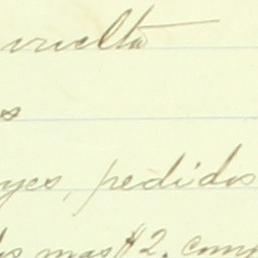 vuelta
s
yes, pedidos
s mas $2. com